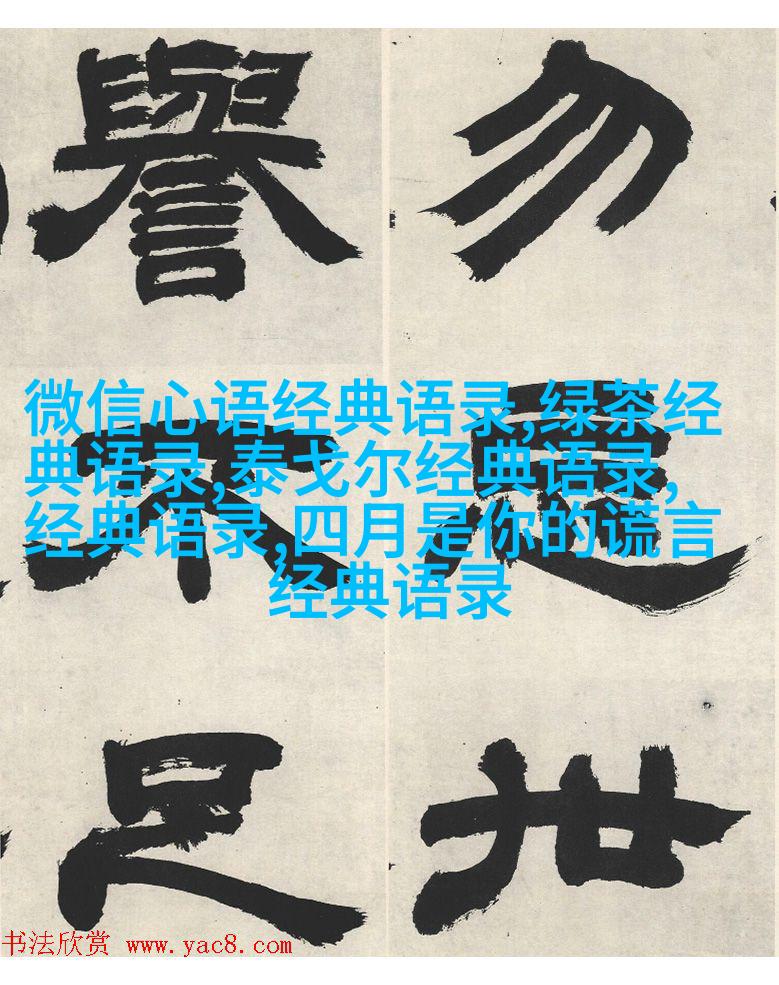 勿
世
譽不足
微信心语经典语录,绿茶经
典语录,泰戈尔经典语录,
经典语录,四月是你的谎言
经典语录
书法欣赏 www.yac8.com